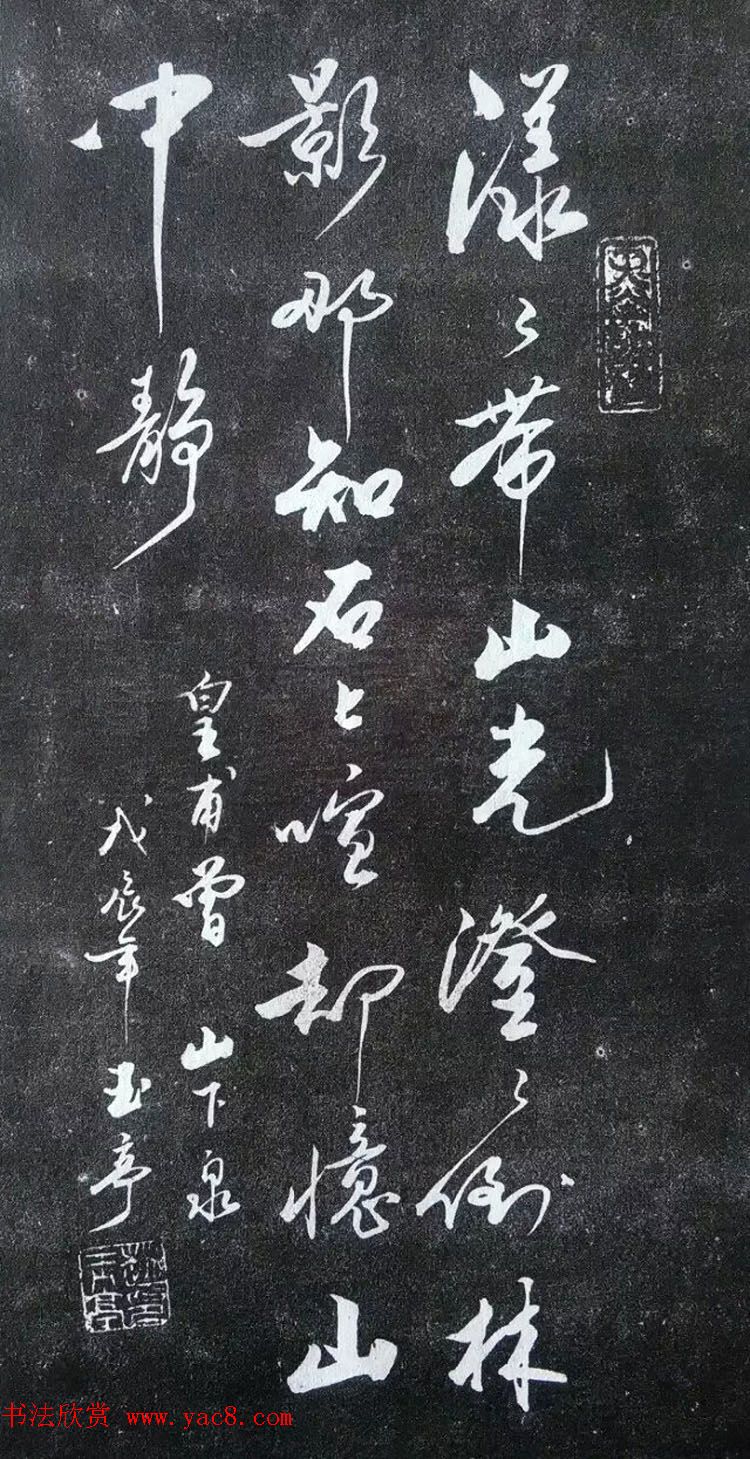 漾〻带山光澄〻倒林
影那知石上喧却憶山
中静
皇甫曾 山下泉
戊辰年玉亭
书法欣赏 www.yac8.com